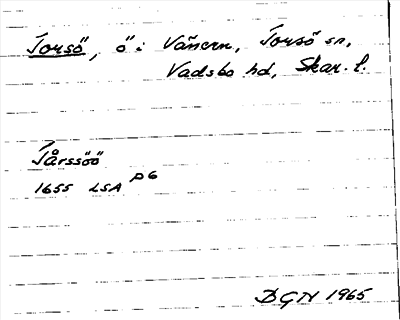 Torsö, ö i Vänern, Torsö sn,
Vadsbo hd, Skar. l.
Tårssöö
1655 LSA P6
DGN 1965